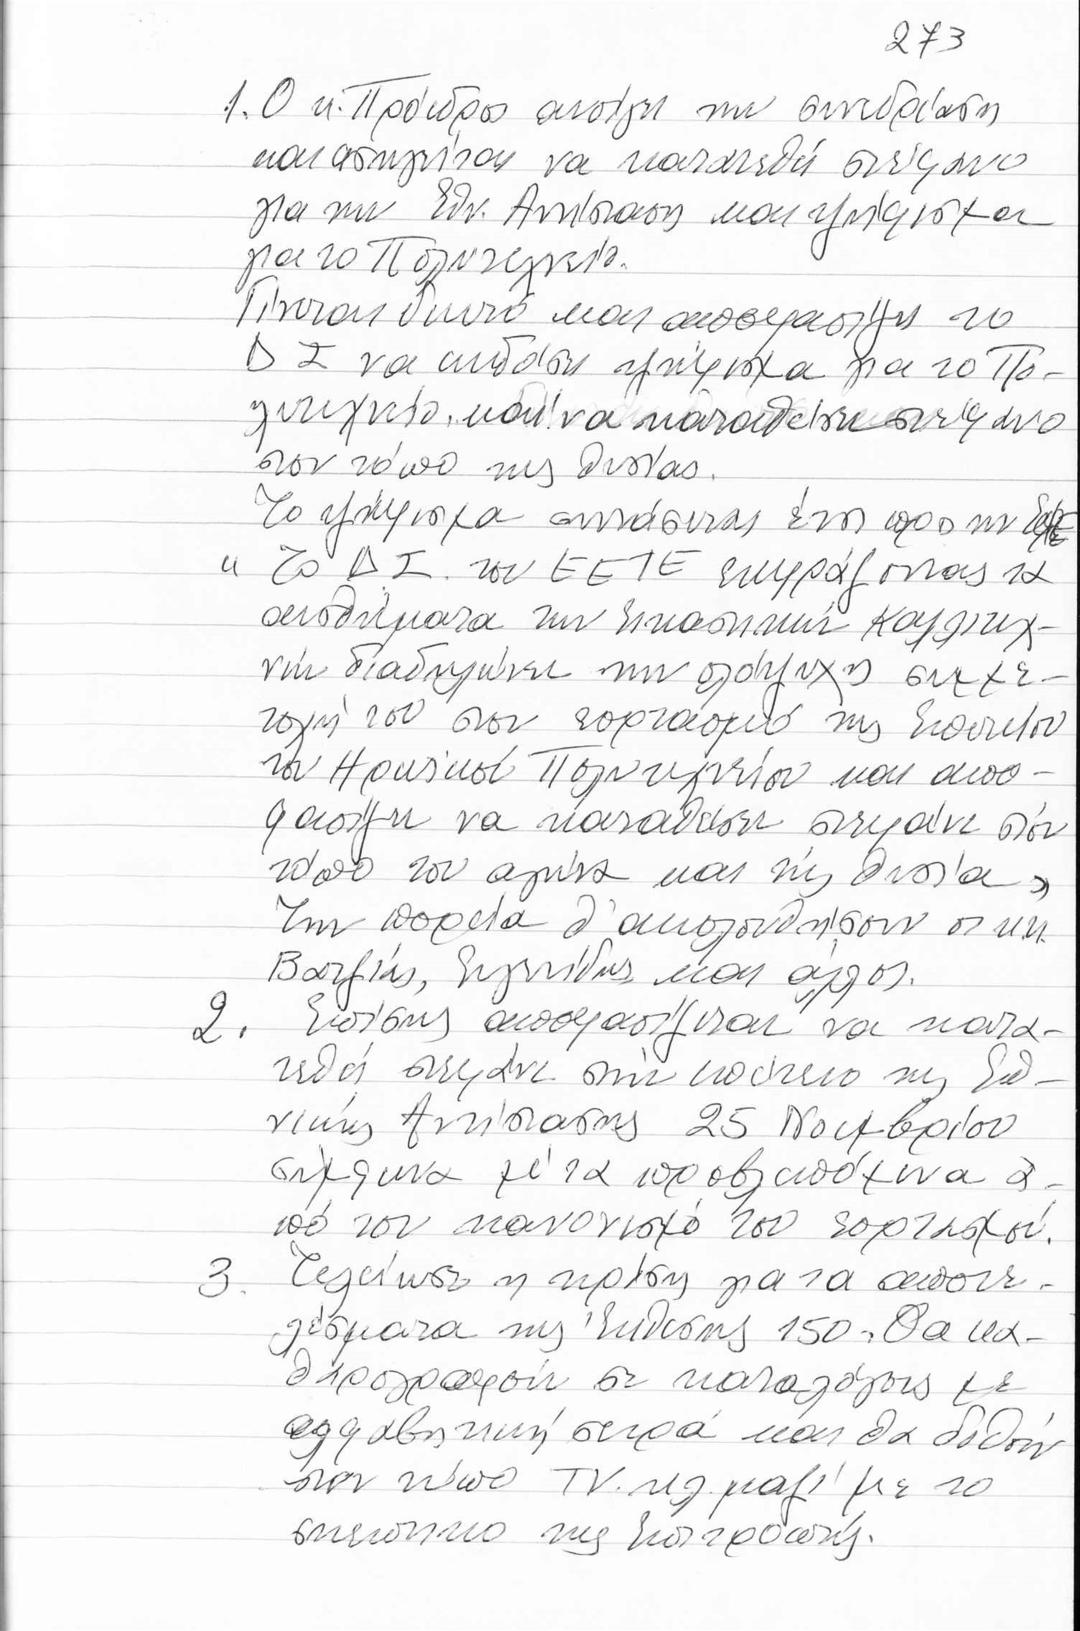 273
1. Ο κ. Πρόεδρος ανοίγει την συνεδρίαση
και εισηγείται να κατατεθή στέφανο
για την Εθν. Αντίσταση και ψήφισμα
για το Πολυτεχνείο.
Γίνεται δεκτό και αποφασίζει το
Δ Σ να εκδόση ψήφισμα για το Πο-
λυτεχνείο, και να καταθέσει στεφάνο
στον τόπο της θυσίας.
Το ψήφισμα συντάσεται έτσι προς την
" Το Δ Σ. του ΕΕΤΕ εκφράζοντας τα
αισθήματα των Εικαστικών Καλλιτεχ-
νών διαδηλώνει την ολόψυχη συμμε-
τοχή του στον εορτασμό της Επετείου
του Ηρωϊκού Πολυτεχνείου και απο-
φασίζει να καταθέσει στεφάνι στόν
τόπο του αγώνα και της θυσία »
Την πορεία θ' ακολουθήσουν οι κκ.
και άλλοι.
2. Επίσης αποφασίζεται να κατα-
τεθεί στεφάνι στήν επέτειο της Εθ-
νικής Αντίστασης 25 Νοεμβρίου
σύμφωνα μέ τα προβλεπόμενα α-
πό τον κανονισμό του εορτασμού.
3. Τελείωσε η κρίση για τα αποτε-
λέσματα της Έκθεσης 150. Θα κα-
θαρογραφούν σε καταλόγους με
αλφαβητική σειρά και θα δοθούν
στον τύπο TV. κλ. μαζί με το
σκεπτικο της Επιτροπής.